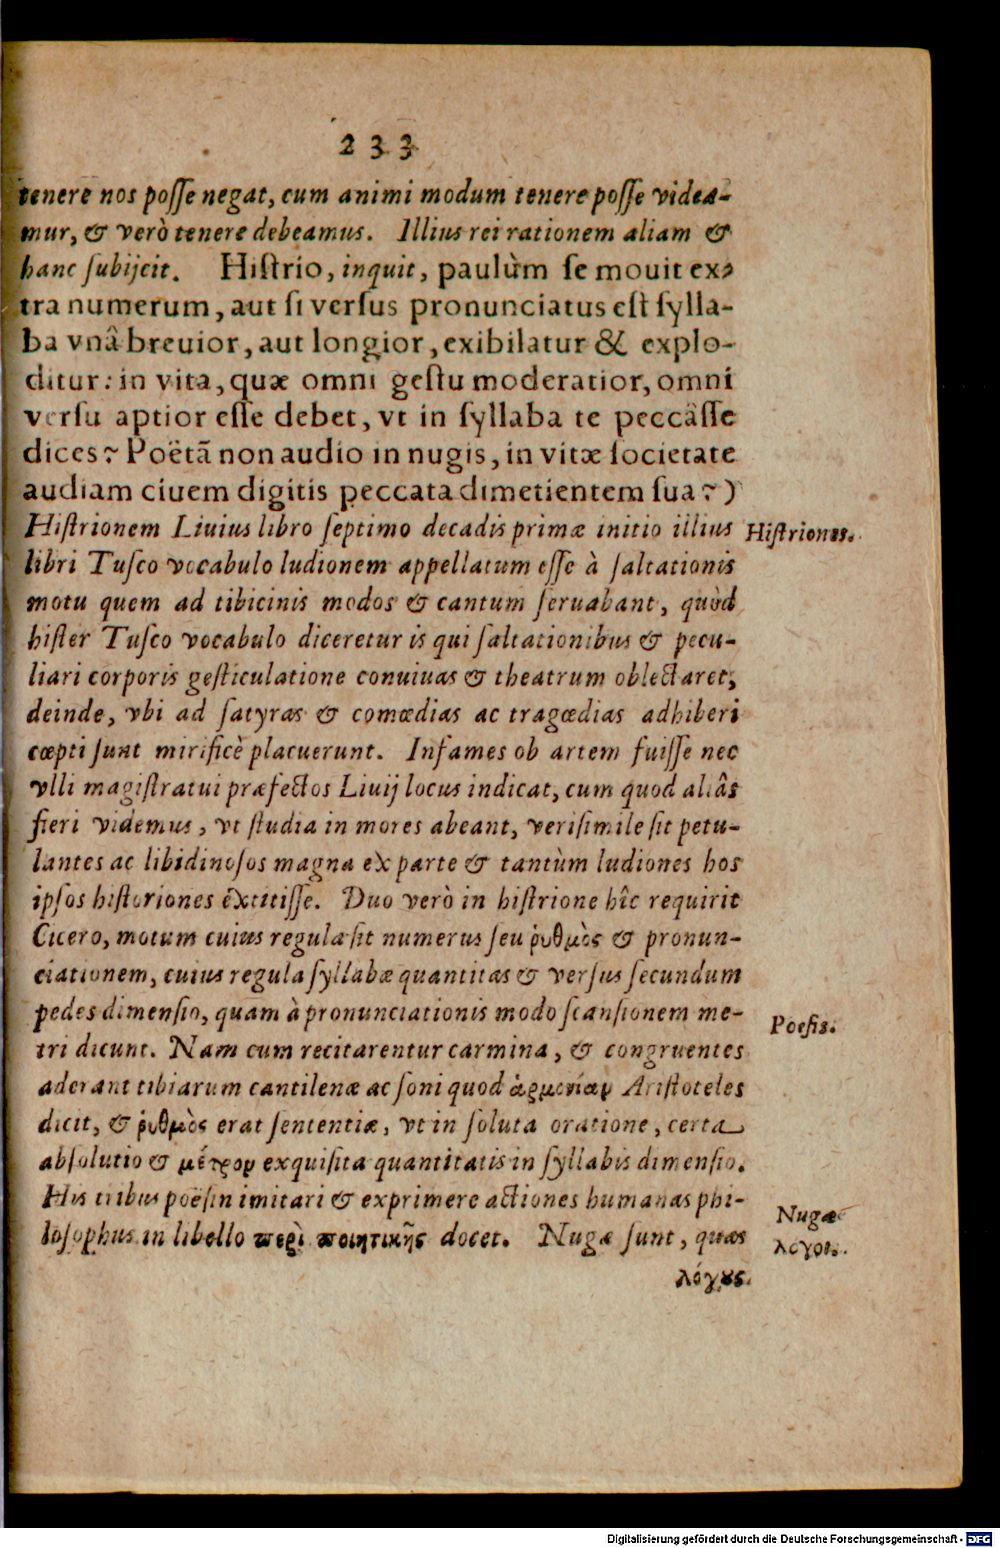 233
tenere nos posſe negat, cum animi modum tenere posſe videa-
mur, & verò tenere debeamus. Illius rei rationem aliam &
hanc ſubijcit. Hiſtrio, inquit, paulùm ſe mouit ex-
tra numerum, aut ſi verſus pronunciatus eſt ſylla-
ba vnâ breuior, aut longior, exibilatur & explo-
ditur: in vita, quæ omni geſtu moderatior, omni
verſu aptior eſſe debet, vt in ſyllaba te peccâſſe
dices? Poëtã non audio in nugis, in vitæ ſocietate
audiam ciuem digitis peccata dimetientem ſua?)
Hiſtrionem Liuius libro ſeptimo decadis primæ initio illius
Hiſtriones.
libri Tuſco vocabulo ludionem appellatum eſſe à ſaltationis
motu quem ad tibicinis modos & cantum ſeruabant, quòd
hiſter Tuſco vocabulo diceretur is qui ſaltationibus & pecu-
liari corporis geſticulatione conuiuas & theatrum oblectaret,
deinde, vbi ad ſatyras & comœdias ac tragœdias adhiberi
cœpti ſunt mirificè placuerunt. Infames ob artem fuiſſe nec
vlli magiſtratui præfectos Liuij locus indicat, cum quod aliâs
fieri videmus, vt ſtudia in mores abeant, veriſimile ſit petu-
lantes ac libidinoſos magna ex parte & tantùm ludiones hos
ipſos hiſtoriones êxtitiſſe. Duo verò in hiſtrione hîc requirit
Cicero, motum cuius regula ſit numerus ſeu ῥυθμὸς & pronun-
ciationem, cuius regula ſyllabæ quantitas & verſus ſecundum
pedes dimenſio, quam à pronunciationis modo ſcanſionem me-
Poeſis.
tri dicunt. Nam cum recitarentur carmina, & congruentes
aderant tibiarum cantilenæ ac ſoni quod ἁρμονίαν Ariſtoteles
dicit, & ῥυθμὸς erat ſententiæ, vt in ſoluta oratione, certa
abſolutio & μέτρον exquiſita quantitatis in ſyllabis dimenſio.
His tribus poëſin imitari & exprimere actiones humanas phi-
loſophus in libello περὶ ποιητικῆς docet. Nugæ ſunt, quas
Nugæ
λογοι.
λόγȣς.
Digitalisierung gefördert durch die Deutsche Forschungsgemeinschaft - DFG